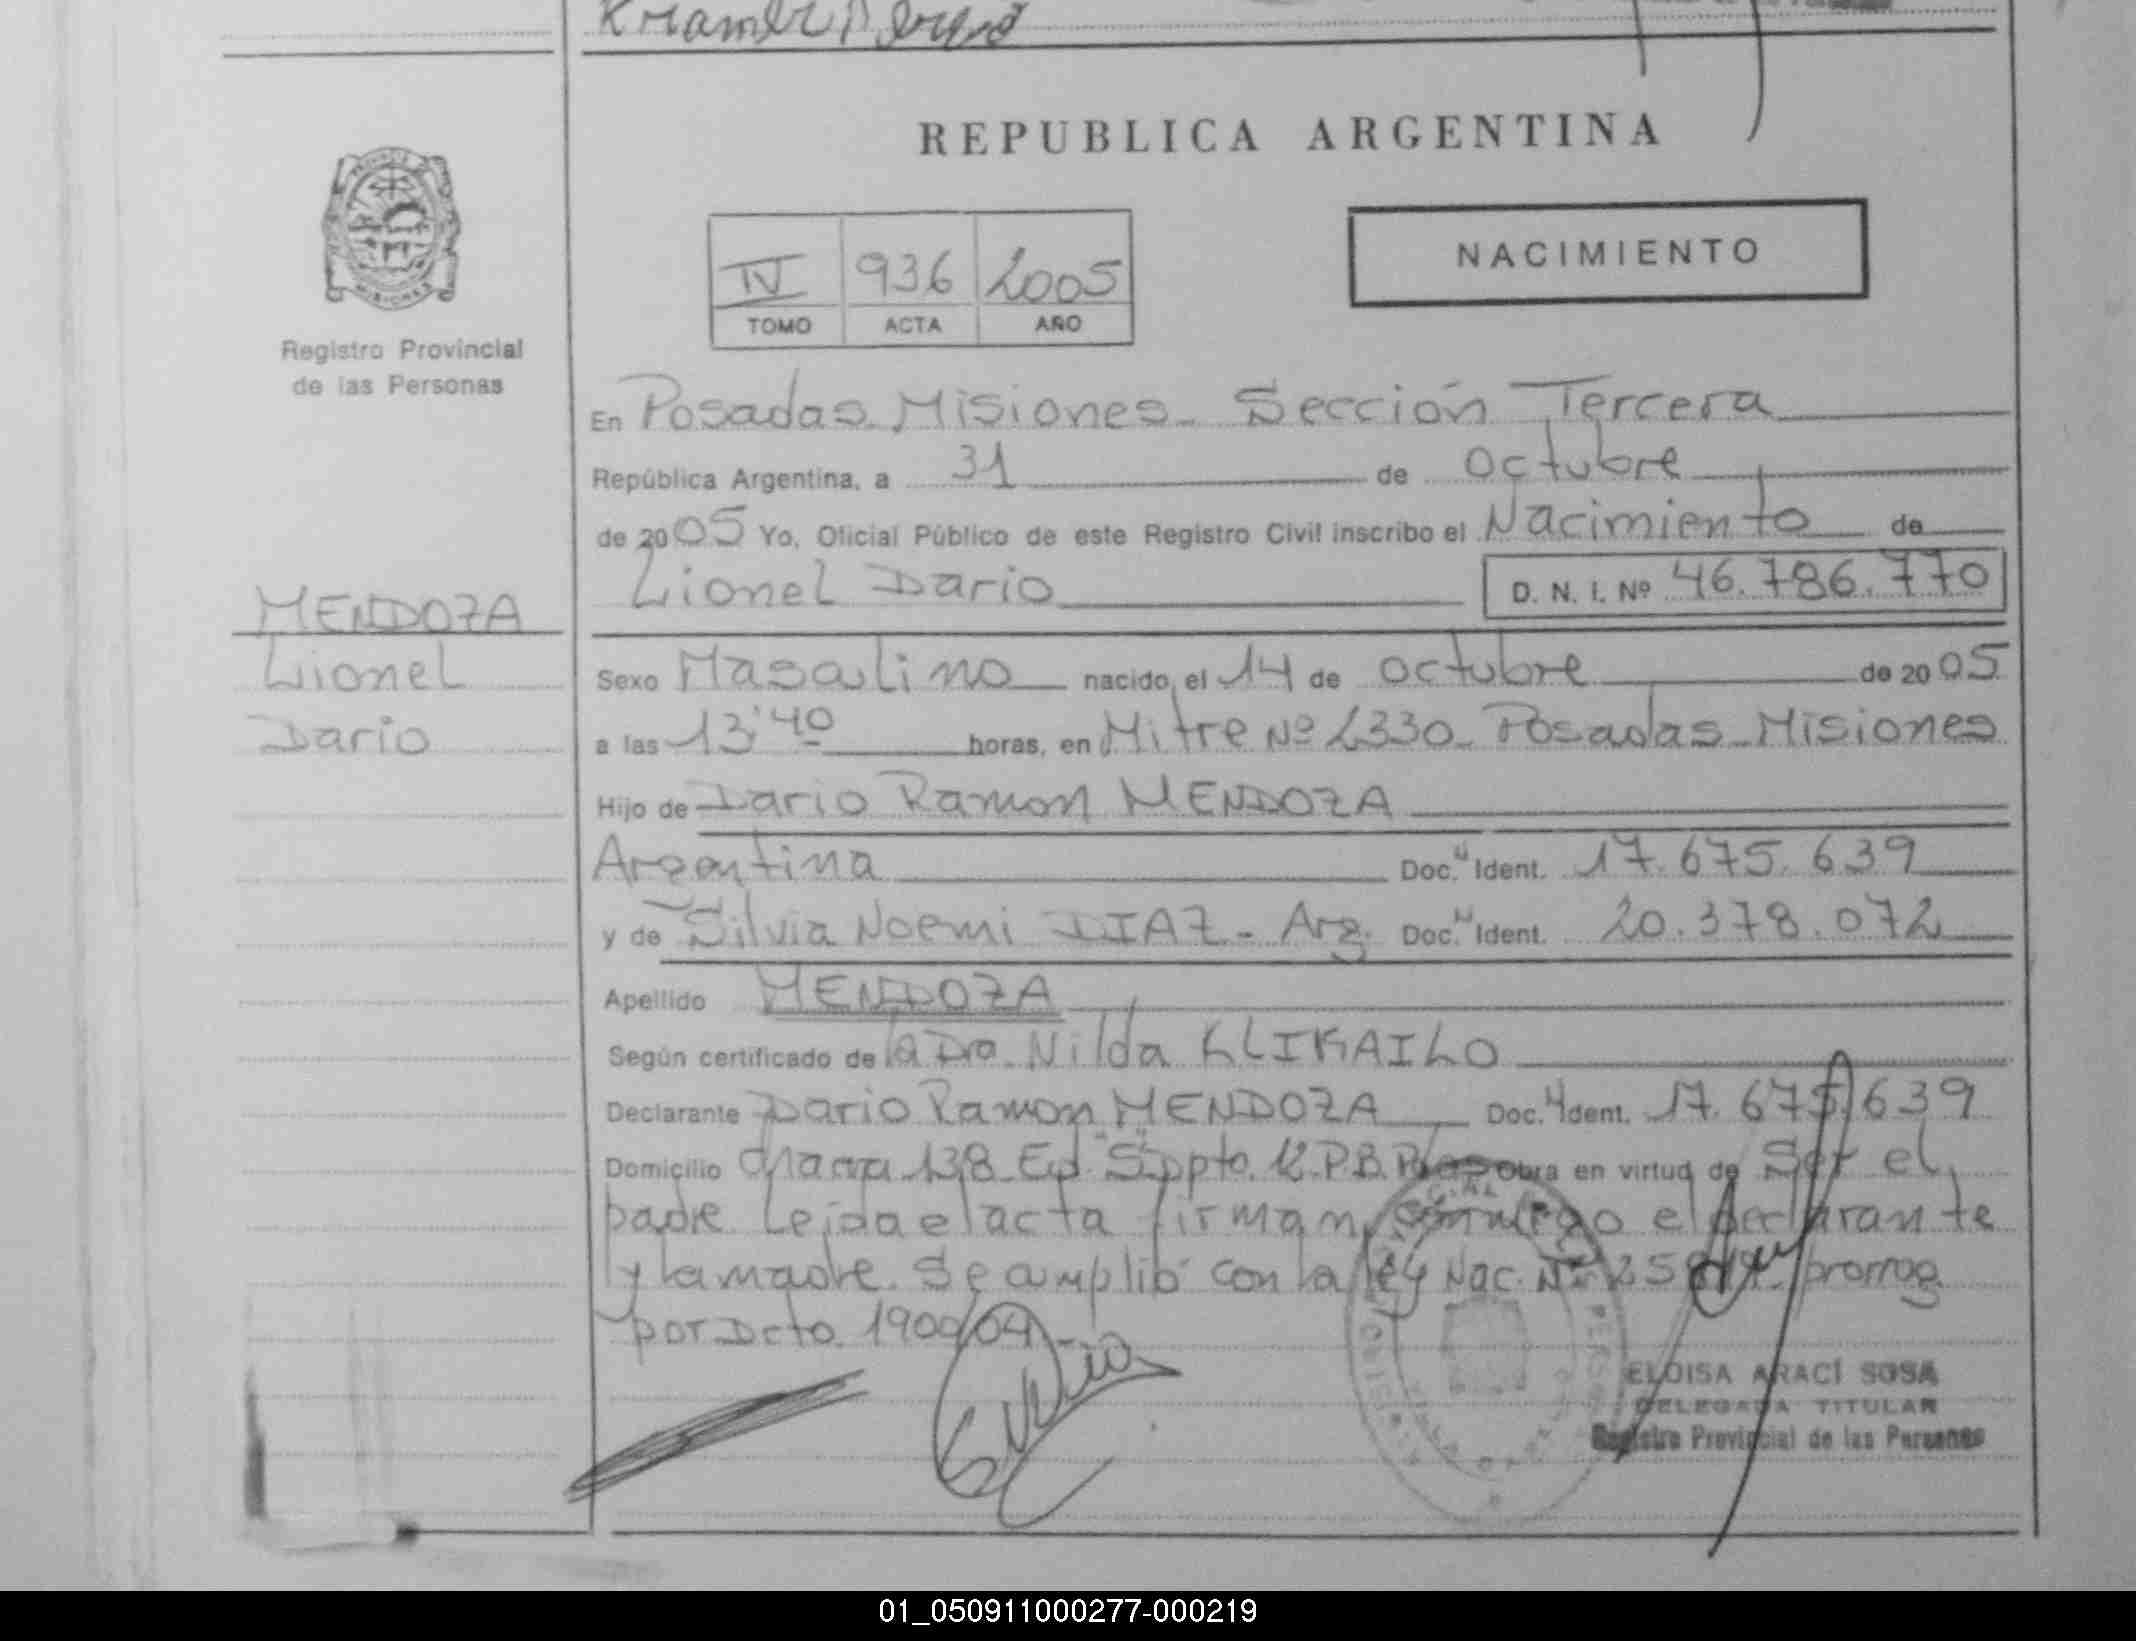 REPUBLICA ARGENTINA
NACIMIENTO
IV 936 2005
TOMO ACTA AÑO
MISIONES
Registro Provincial
de las Personas
En Posadas. Misiones. Sección Tercera
República Argentina, a 31 de octubre
de 2005 Yo, Oficial Público de este Registro Civil inscribo el Nacimiento de
Lionel Dario D. N. I. Nº 46.786.770
MENDOZA
Lionel
Dario
Sexo Masculino nacido el 14 de octubre de 2005
a las 13:40 horas, en Mitre Nº 2330. Posadas. Misiones
Hijo de Dario Ramon MENDOZA
Argentina Doc. Ident. 17.675.639
y de Silvia Noemi DIAZ - Arg. Doc. Ident. 20.378.072
Apellido MENDOZA
Según certificado de la Dra. Nilda KLIKAILO
Declarante Dario Ramon MENDOZA Doc. Ident. 17.675.639
Domicilio Chacra 138 Ed. 5 Dpto. 12. P.B. obra en virtud de Ser el
padre. Leida el acta firman conmigo el declarante
y la madre. Se cumplió con la ley Nac. Nº prorrog.
por Dcto. 1900/04
ELOISA ARACÍ SOSA
DELEGADA TITULAR
Registro Provincial de las Personas
01_050911000277-000219